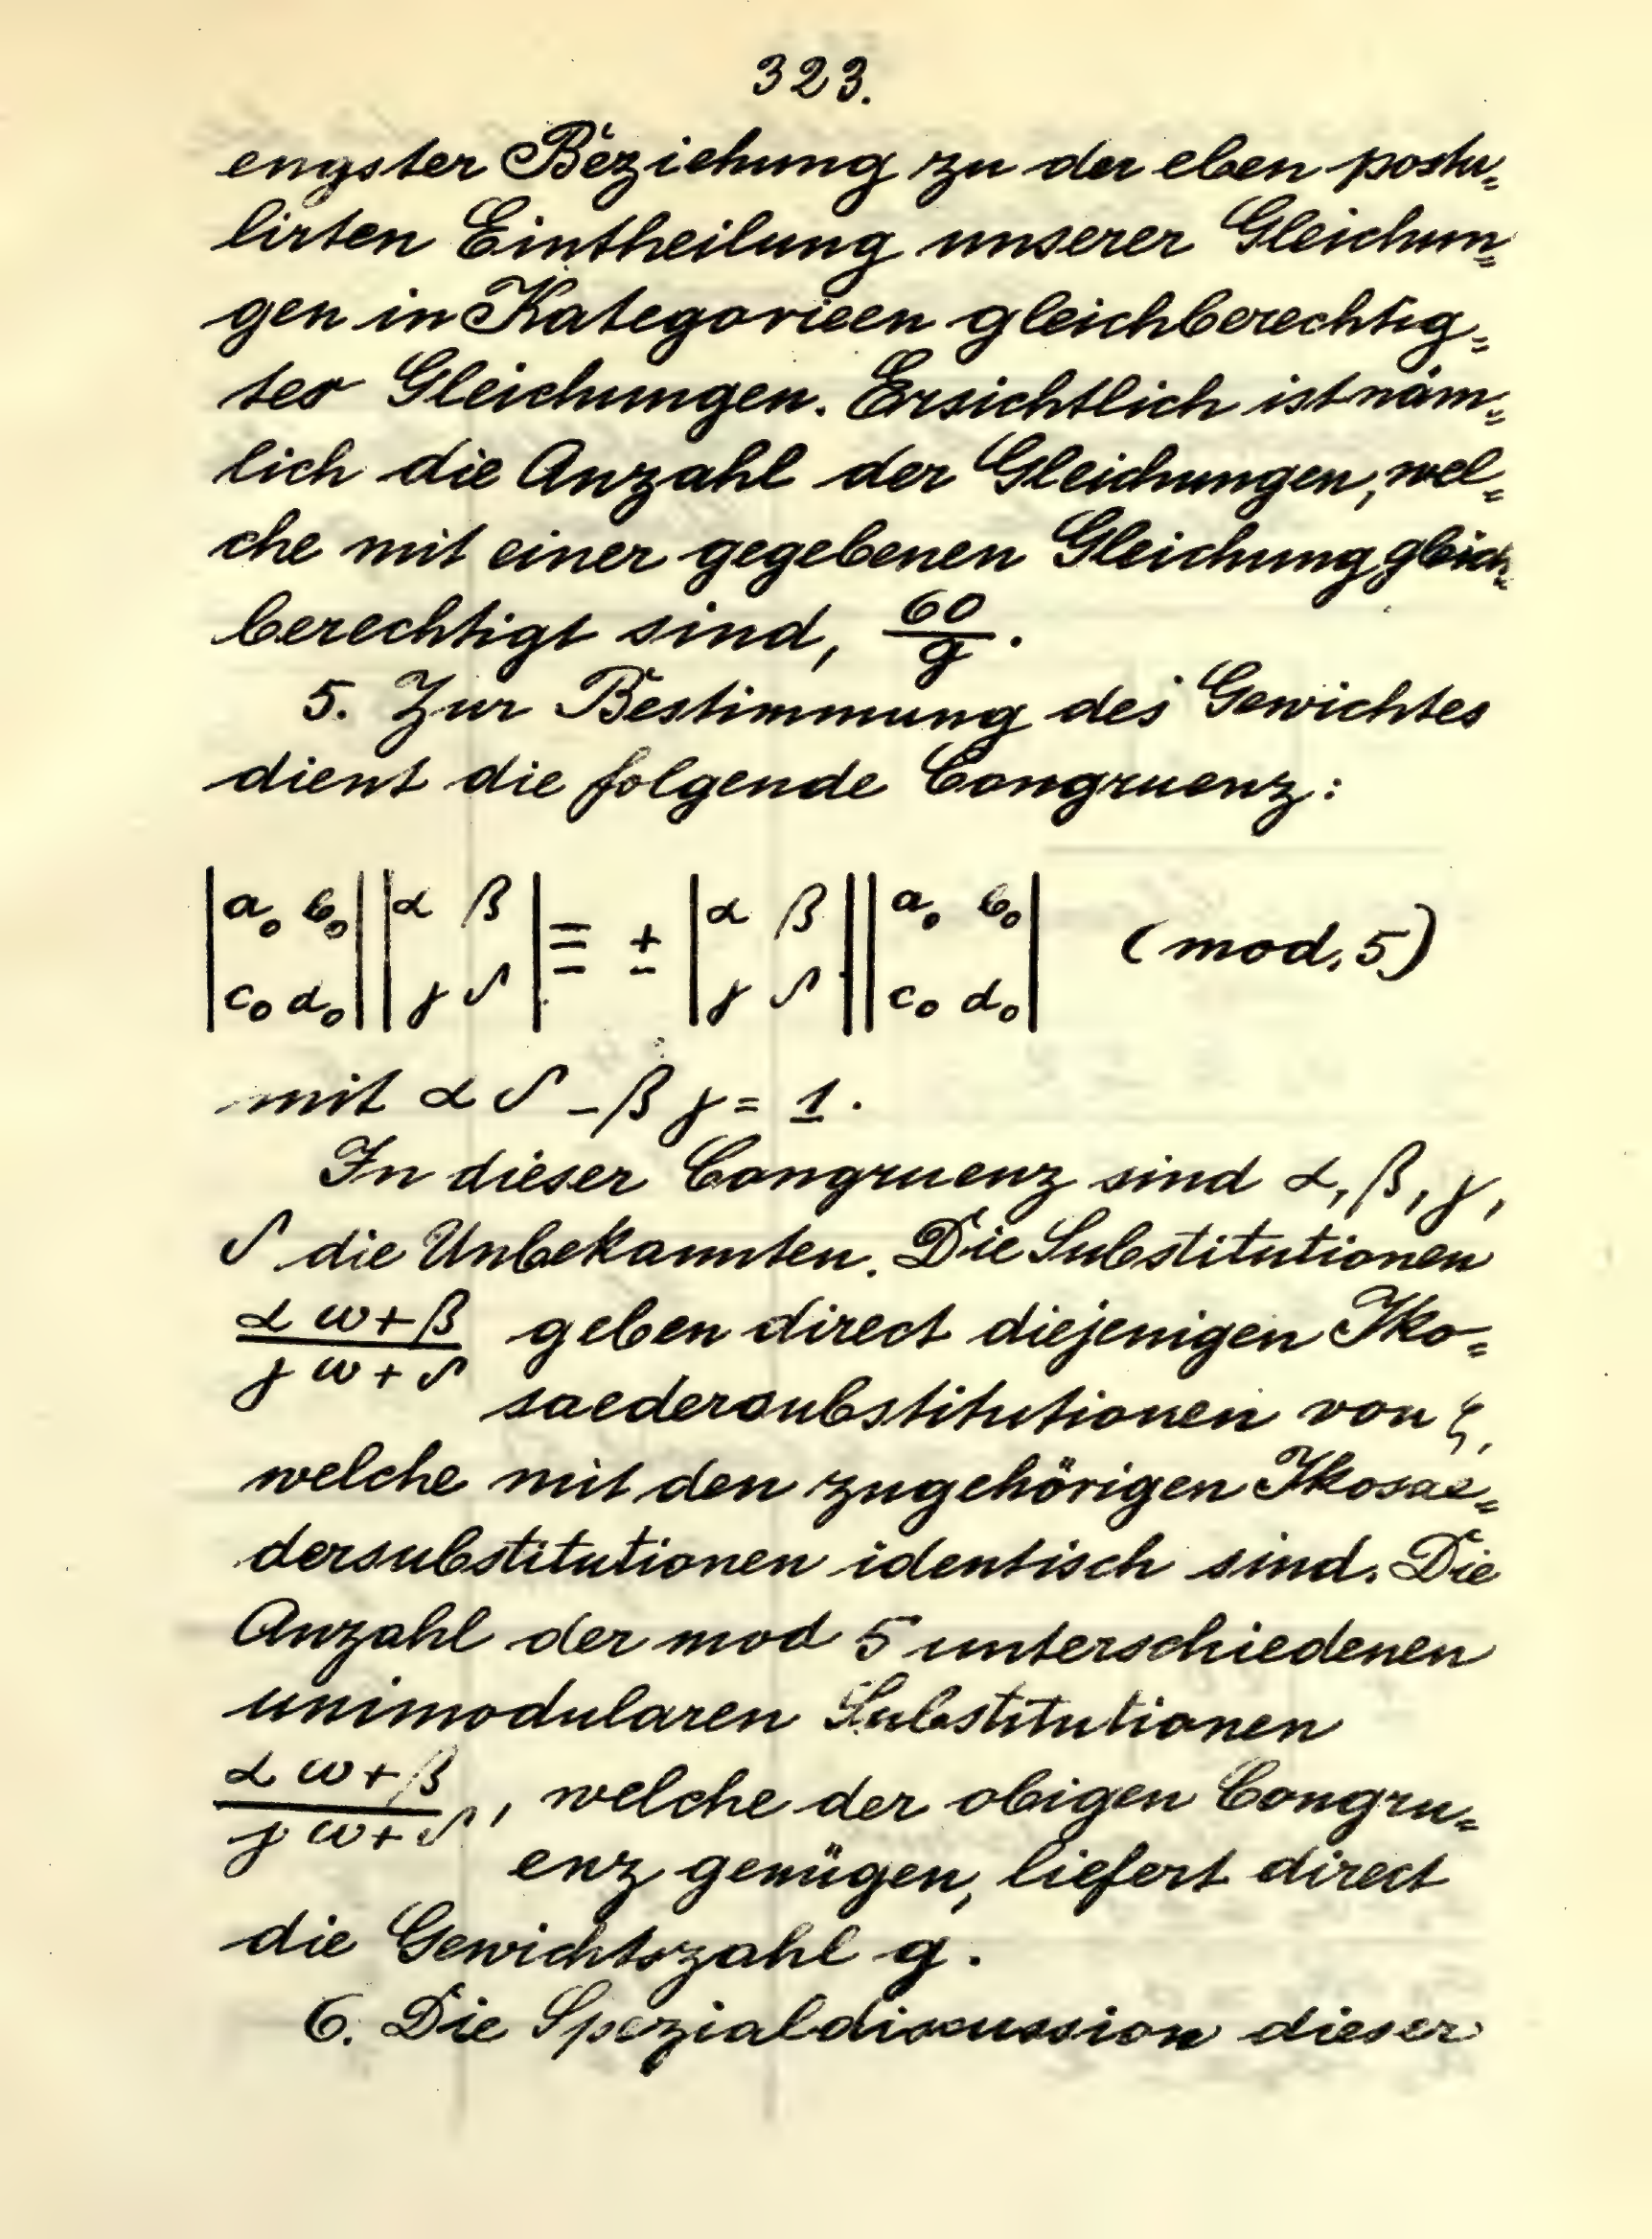 323.
engster Beziehung zu der eben postu=
lirten Eintheilung unserer Gleichun=
gen in Kategorieen gleichberechtig=
ter Gleichungen. Ersichtlich ist näm=
lich die Anzahl der Gleichungen, wel=
che mit einer gegebenen Gleichung gleich=
berechtigt sind, 60/g.
5. Zur Bestimmung des Gewichtes
dient die folgende Congruenz:
|a₀ b₀| |α β| ≡ ± |α β| |a₀ b₀| (mod. 5)
|c₀ d₀| |γ δ| |γ δ| |c₀ d₀|
mit αδ - βγ = 1.
In dieser Congruenz sind α, β, γ,
δ die Unbekannten. Die Substitutionen
(αω+β)/(γω+δ) geben direct diejenigen Iko=
saedersubstitutionen von ζ,
welche mit den zugehörigen Ikosae=
dersubstitutionen identisch sind. Die
Anzahl der mod 5 unterschiedenen
unimodularen Substitutionen
(αω+β)/(γω+δ), welche der obigen Congru=
enz genügen, liefert direct
die Gewichtszahl g.
6. Die Spezialdiscussion dieser